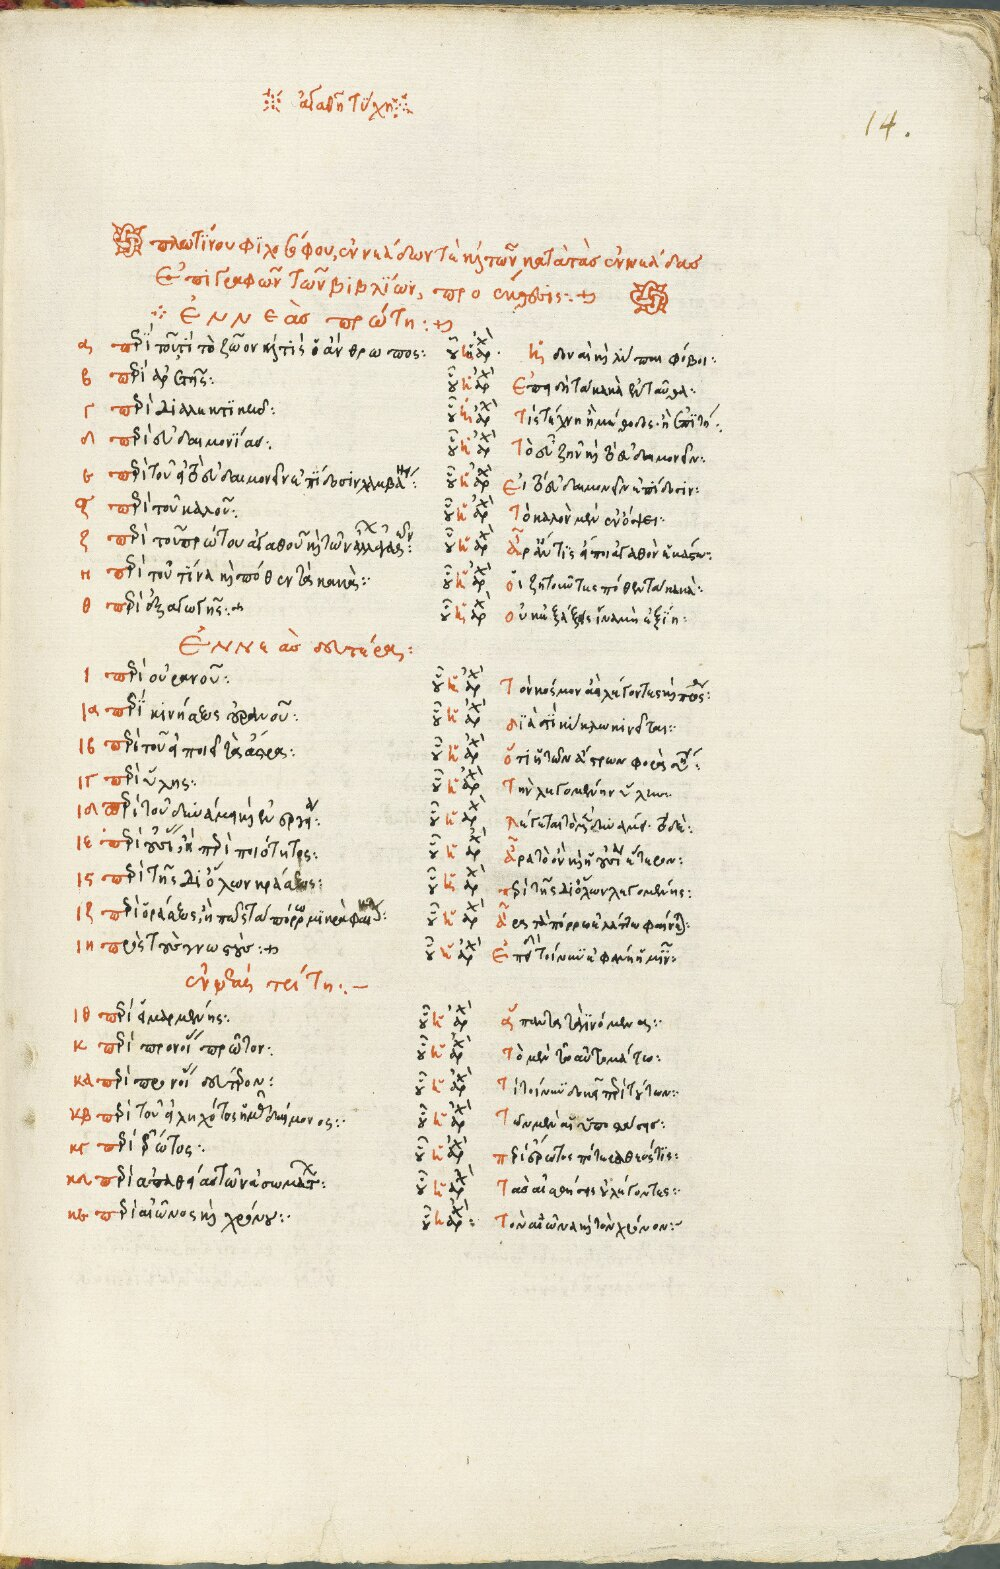 ἀγαθῇ τύχῃ
14.
πλωτίνου φιλοσόφου, ἐννεάδων τε καὶ τῶν κατὰ τὰς ἐννεάδας
ἐπιγραφῶν τῶν βιβλίων, προέκθεσις:
ἐννεὰς πρώτη:
α περὶ τοῦ τί τὸ ζῶον καὶ τίς ὁ ἄνθρωπος: οὗ ἡ ἀρχὴ ἡδοναὶ καὶ λύπαι φόβοι:
β περὶ ἀρετῆς: οὗ ἡ ἀρχὴ ἐπειδὴ τὰ κακὰ ἐνταῦθα:
γ περὶ διαλεκτικῆς: οὗ ἡ ἀρχὴ τίς τέχνη ἢ μέθοδος ἢ ἐπιτή:
δ περὶ εὐδαιμονίας: οὗ ἡ ἀρχὴ τὸ εὖ ζῆν καὶ τὸ εὐδαιμονεῖν:
ε περὶ τοῦ εἰ τὸ εὐδαιμονεῖν ἐπίδοσιν λαμβάνει: οὗ ἡ ἀρχὴ εἰ τὸ εὐδαιμονεῖν ἐπίδοσιν:
ϛ περὶ τοῦ καλοῦ: οὗ ἡ ἀρχὴ τὸ καλὸν μὲν ἐν ὄψει:
ζ περὶ τοῦ πρώτου ἀγαθοῦ καὶ τῶν ἄλλων ἀγαθῶν: οὗ ἡ ἀρχὴ ἆρ' ἄν τις εἴποι ἀγαθὸν ἑκάστω:
η περὶ τοῦ τίνα καὶ πόθεν τὰ κακὰ: οὗ ἡ ἀρχὴ οἱ ζητοῦντες πόθεν τὰ κακὰ:
θ περὶ ἐξαγωγῆς: οὗ ἡ ἀρχὴ οὐκ ἐξάξεις ἵνα μὴ ἐξίῃ:
ἐννεὰς δευτέρας:
ι περὶ οὐρανοῦ: οὗ ἡ ἀρχὴ τὸν κόσμον ἀεὶ λέγοντες καὶ πρόσθεν:
ια περὶ κινήσεως οὐρανοῦ: οὗ ἡ ἀρχὴ διὰ τί κύκλω κινεῖται:
ιβ περὶ τοῦ εἰ ποιεῖ τὰ ἄστρα: οὗ ἡ ἀρχὴ ὅτι ἡ τῶν ἄστρων φορὰ
ιγ περὶ ὕλης: οὗ ἡ ἀρχὴ τὴν λεγομένην ὕλην
ιδ περὶ τοῦ δυνάμει καὶ ἐνεργεία: οὗ ἡ ἀρχὴ λέγεται τὸ μὲν δυνάμει τὸ δὲ:
ιε περὶ οὐσίας, ἢ περὶ ποιότητος: οὗ ἡ ἀρχὴ ἆρα τὸ ὂν καὶ ἡ οὐσία ἕτερον:
ιϛ περὶ τῆς δι' ὅλων κράσεως: οὗ ἡ ἀρχὴ περὶ τῆς δι' ὅλων λεγομένης:
ιζ περὶ ὁράσεως, ἢ πῶς τὰ πόρρω μικρὰ φαίνεται: οὗ ἡ ἀρχὴ ἆρα τὰ πόρρω ἐλάττω φαίνεται:
ιη πρὸς τοὺς γνωστικούς: οὗ ἡ ἀρχὴ ἐπειδὴ τοίνυν ἐφάνη ἡμῖν:
ἐννεὰς τρίτη:
ιθ περὶ εἱμαρμένης: οὗ ἡ ἀρχὴ ἅπαντα τὰ γινόμενα:
κ περὶ προνοίας πρῶτον: οὗ ἡ ἀρχὴ τὸ μὲν τῶ αὐτομάτω:
κα περὶ προνοίας δεύτερον: οὗ ἡ ἀρχὴ τί τοίνυν δοκεῖ περὶ τούτων:
κβ περὶ τοῦ εἰληχότος ἡμᾶς δαίμονος: οὗ ἡ ἀρχὴ τῶν μὲν αἱ ὑποστάσεις:
κγ περὶ ἔρωτος: οὗ ἡ ἀρχὴ περὶ ἔρωτος πότερα θεός τις:
κδ περὶ ἀπαθείας τῶν ἀσωμάτων: οὗ ἡ ἀρχὴ τὰς αἰσθήσεις οὐ λέγοντες:
κε περὶ αἰῶνος καὶ χρόνου: οὗ ἡ ἀρχὴ τὸν αἰῶνα καὶ τὸν χρόνον: